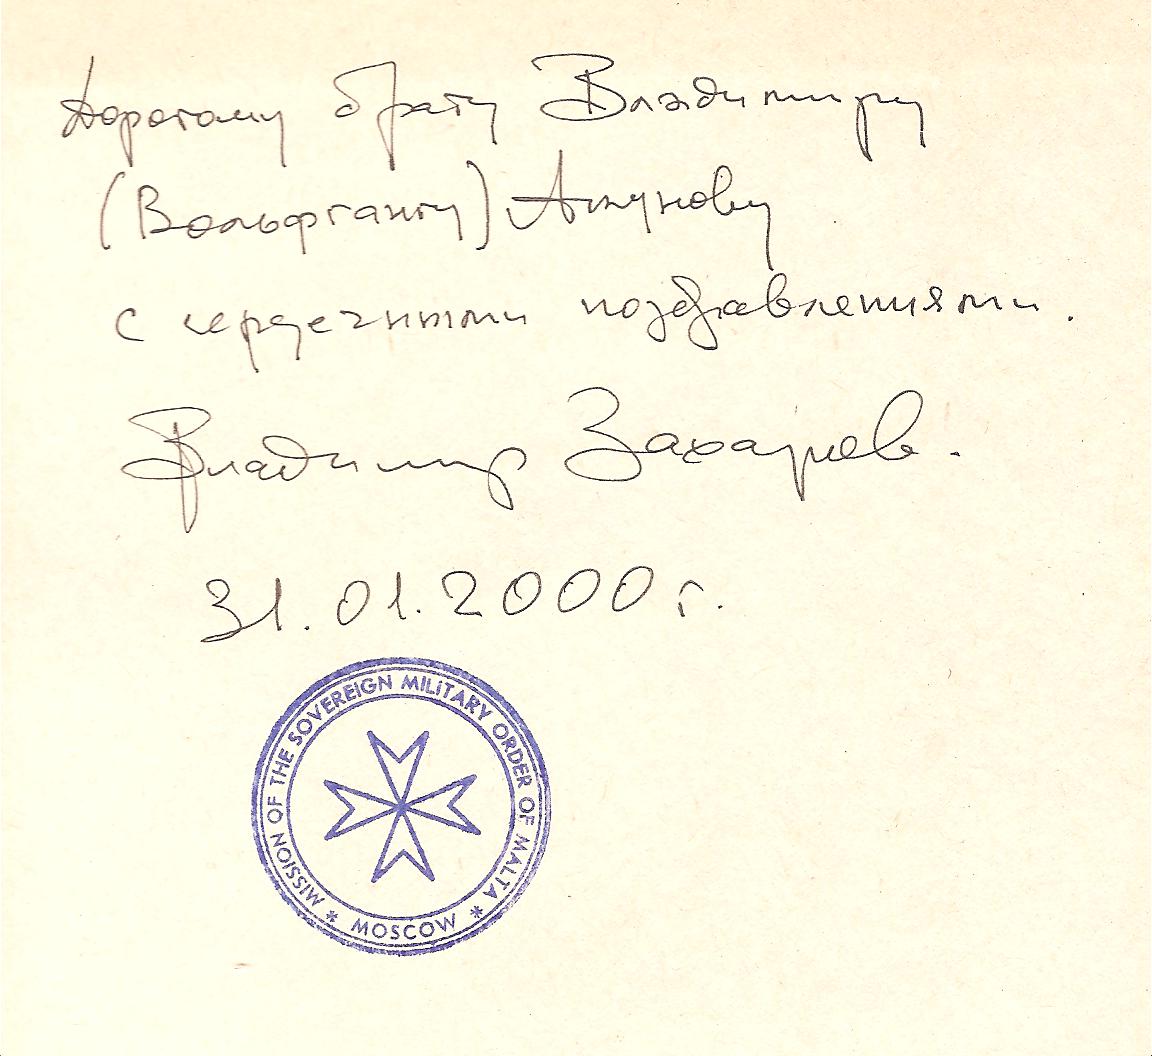 Дорогому брату Владимиру
(Вольфгангу) Акунову
с сердечными поздравлениями.
Владимир Захаров.
31.01.2000 г.
MISSION OF THE SOVEREIGN MILITARY ORDER OF MALTA
* MOSCOW *